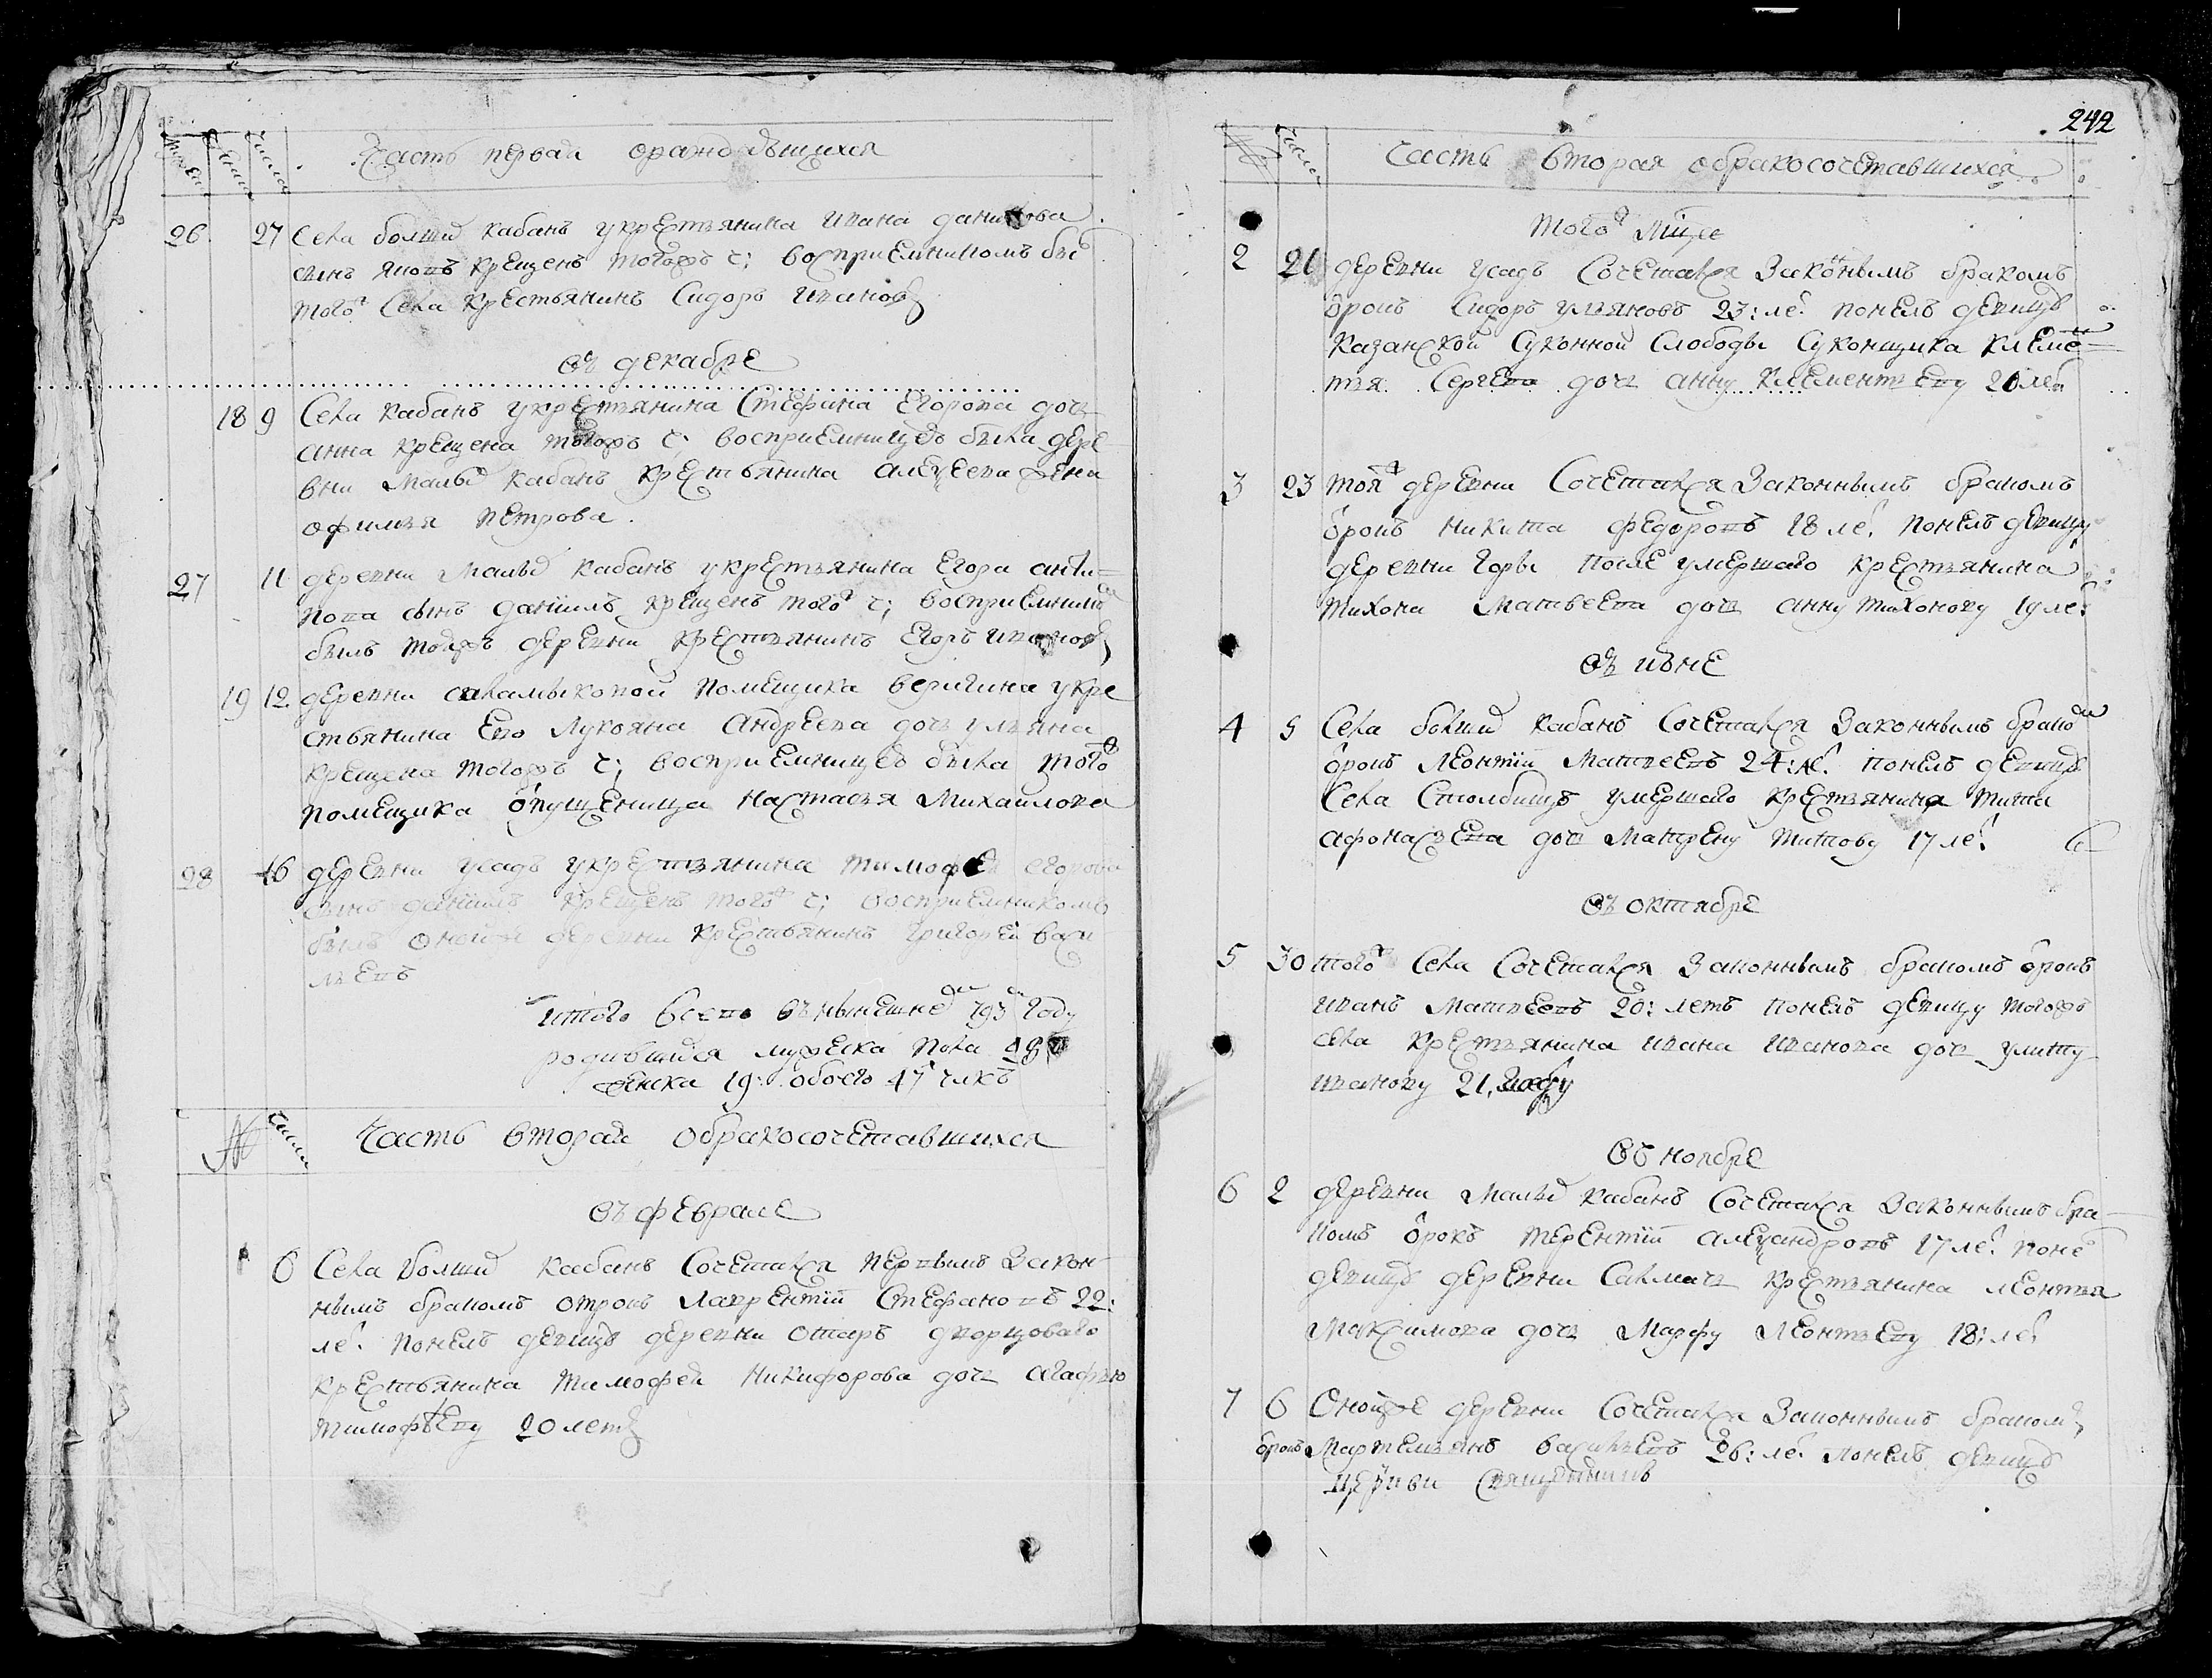 Часть первая о рождьшихся
26 27 Села болших кабанъ у крестьянина Ивана данилова
сынъ яковъ крещенъ тогожъ ч: восприемникомъ былъ
тогож Села крестьянинъ Сидоръ Ивановъ
въ декабре
18 9 Села кабанъ у крестьянина Стефана Егорова дочь
анна крещена тогожъ ч: восприемницею была дере
вни малых кабанъ крестьянина алексеева жена
офимья петрова.
27 11 деревни малых кабанъ у крестьянина Егора анти=
пова сынъ даниилъ крещенъ тогож ч: восприемником
былъ тойжъ деревни крестьянинъ Егоръ Ивановъ
19 12 деревни помещика веригина у кре
стьянина Его Лукояна андреева дочь ульяна
крещена тогожъ ч: восприемницею была тогож
помещика отпущеница настасья Михаилова
28 16 деревни усадъ у крестьянина тимофея егорова
сынъ даниилъ крещенъ тогож ч: восприемникомъ
былъ оной же деревни крестьянинъ григорей васи
льевъ
итого всего въ нынешнем 793м году
родившихся мужеска пола 28
женска 19: обоего 47 члкъ
№ числа Часть вторая о бракосочетавшихся
въ феврале
1 6 Села болших кабанъ Сочетался первымъ закон
нымъ бракомъ отрокъ лаврентий Стефановъ 22:
лет. понелъ девицу деревни отаръ дворцоваго
крестьянина тимофея никифорова дочь агафью
тимофееву 20 летъ
242
№ числа Часть вторая о бракосочетавшихся
тогож мца
2 21 деревни усадъ Сочетался законнымъ бракомъ
отрокъ Сидоръ ульяновъ 23: лет понелъ девицу
казанской Суконной Слободы Суконщика клеме=
нтья Сергева дочь анну клементьеву 20 лет
3 23 тояж деревни Сочетался законнымъ бракомъ
отрокъ никита федоровъ 18 лет понелъ девицу
деревни горы после умершаго крестьянина
тихона матвеева дочь анну тихонову 19 лет
въ июне
4 5 Села болших кабанъ Сочетался законнымъ браком
отрокъ леонтий матвеевъ 24: лет понелъ девицу
Села Столбищъ умершаго крестьянина тита
афонасьева дочь матрену титову 17 лет
въ октябре
5 30 тогож Села Сочетался законнымъ бракомъ отрокъ
иванъ матвеевъ 20: летъ понелъ девицу тогожъ
села крестьянина ивана иванова дочь улиту
иванову 21, году
въ ноябре
6 2 деревни малых кабанъ Сочетался законнымъ бра
комъ отрокъ терентий александровъ 17 лет поне
девицу деревни Салмачъ крестьянина леонтья
максимова дочь марфу леонтьеву 18: лет
7 6 Онойже деревни Сочетался законнымъ бракомъ
отрокъ мартемьянъ васильевъ 26: лет понелъ девицу
церкви Священникъ